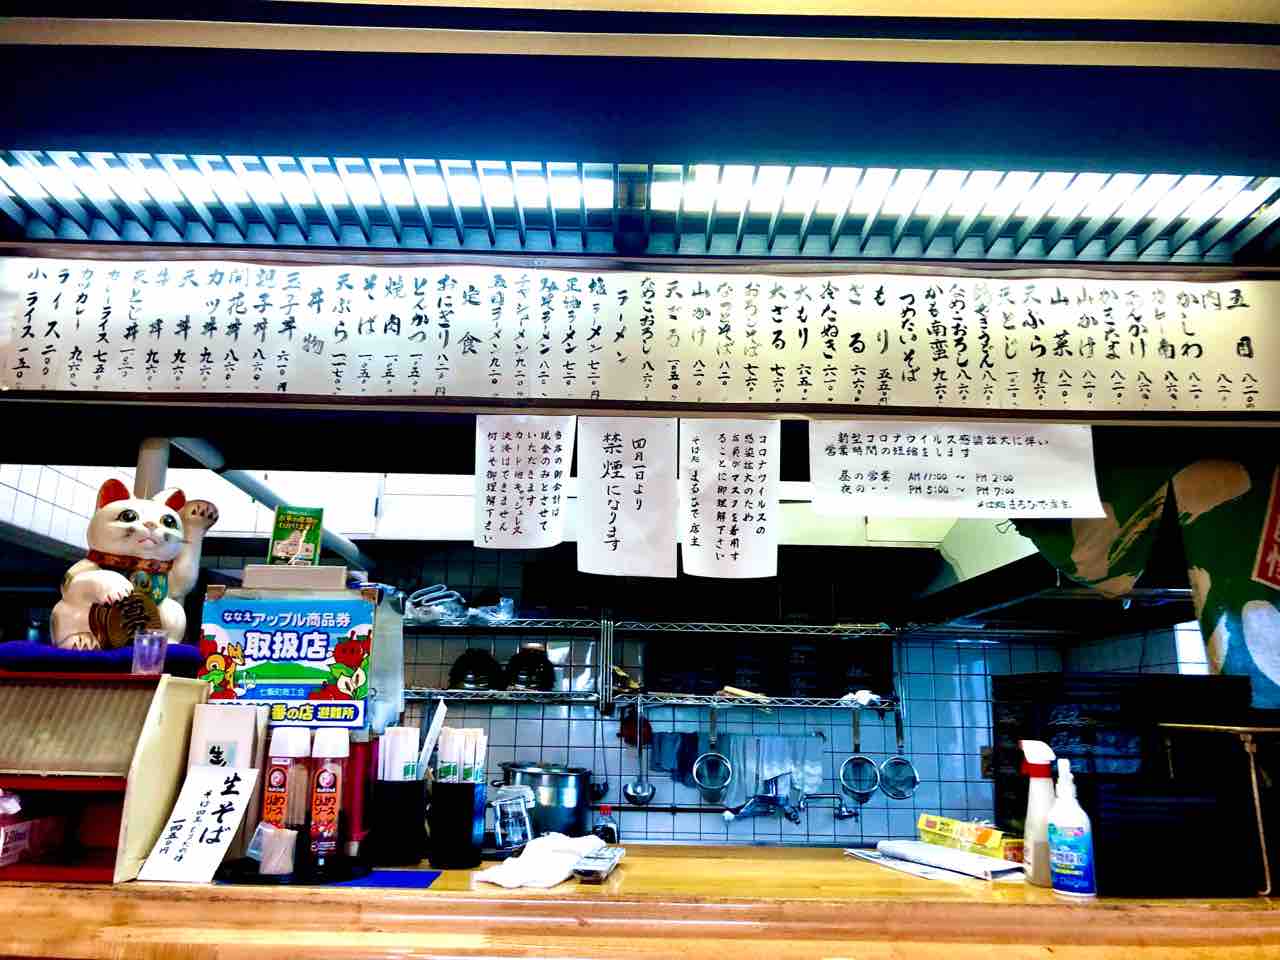 五目 八二〇
肉 八二〇
かしわ 八二〇
カレー南 八六〇
あんかけ 八六〇
山かけ 八二〇
山菜 八二〇
天ぷら 九六〇
天とじ
なめこおろし 八六〇
かも南蛮 九六〇
つめたいそば
もり 五五〇円
ざる 六六〇
冷たぬき 六八〇
大もり 六五〇
大ざる 七六〇
おろしそば 七六〇
山かけ 八二〇
天ざる 一〇五〇
なめこおろし 八六〇
ラーメン
塩ラーメン 七二〇円
正油ラーメン 七二〇
みそラーメン 八二〇
チャシューメン 九二〇
定食
おにぎり 八二〇円
とんかつ
焼肉
そば 一〇五〇
天ぷら
丼物
玉子丼 六八〇円
親子丼 八六〇
開花丼 八六〇
カツ丼 九六〇
天丼 九六〇
牛丼 九六〇
天とじ丼
カレーライス 七五〇
カツカレー 九六〇
ライス 二〇〇
小ライス 一五〇
新型コロナウイルス感染拡大に伴い
営業時間の短縮をします
昼の営業 AM 11:00 〜 PM 2:00
夜の〃〃 PM 5:00 〜 PM 7:00
そば処 まるひで店主
コロナウイルスの
感染拡大のため
店員がマスクを着用す
ることに御理解下さい
そば処 まるひで店主
四月一日より
禁煙になります
当店の御会計は
現金のみとさせて
いただきます
カード他キャッシュレス
決済はできません
何とぞ御理解下さい
ななえアップル商品券
取扱店
七飯町商工会
番の店 避難所
生そば
一四五〇円
とんかつ
ソース
とんかつ
ソース